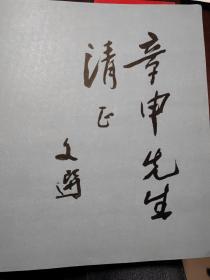 章申先生
清正
文选